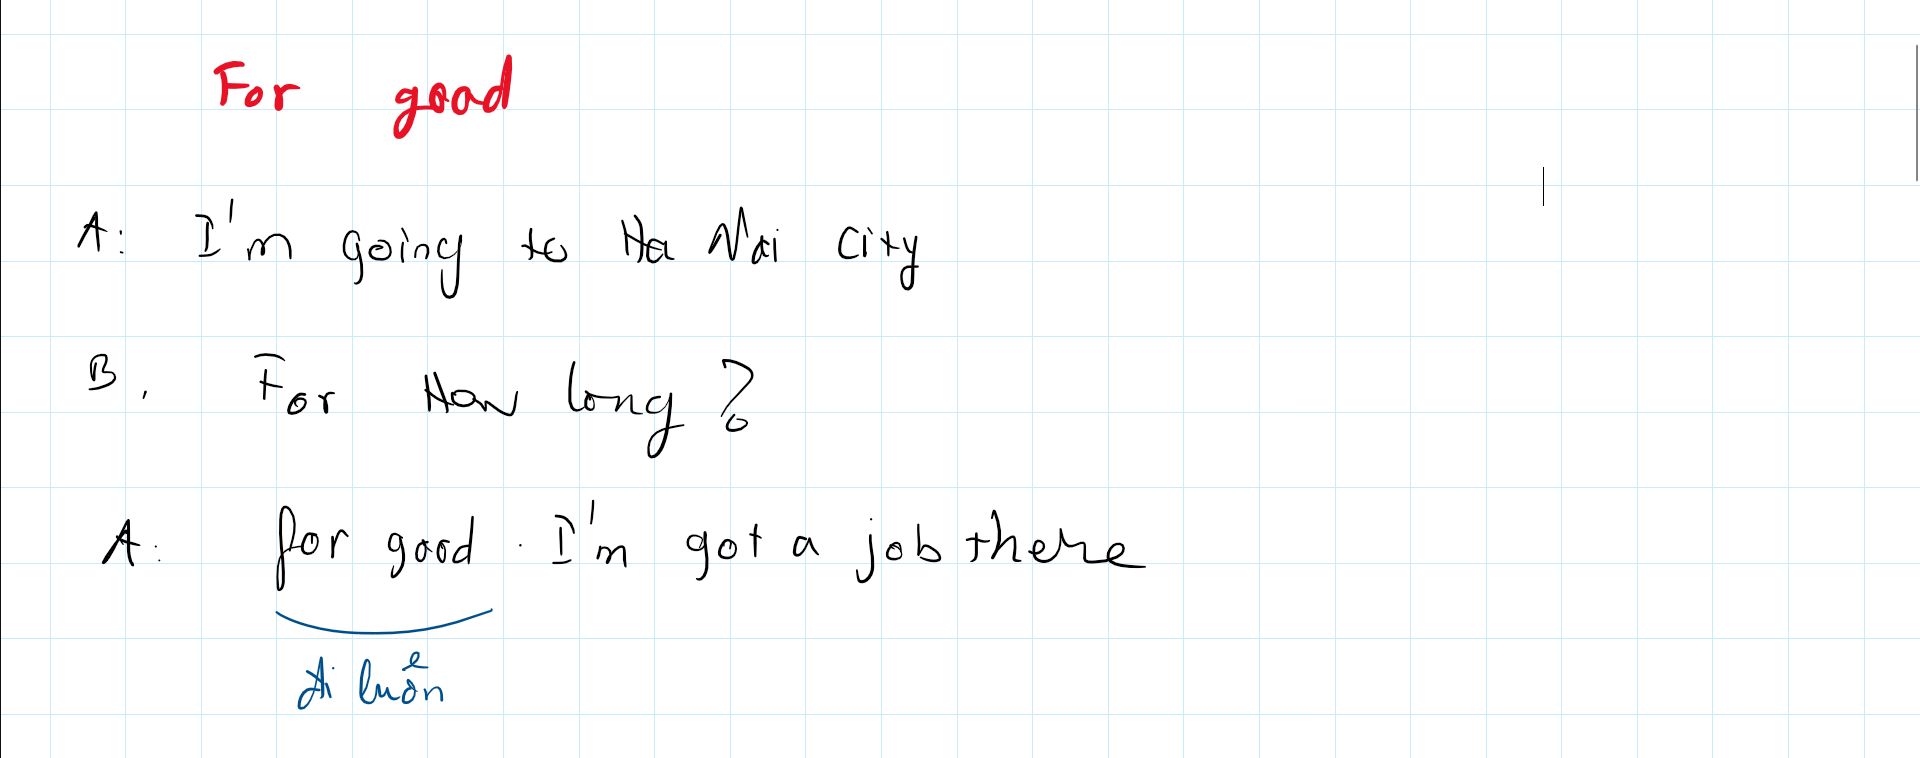 For good
A: I'm going to Ha Nai City
B. For How long?
A: for good. I'm got a job there
đi luôn